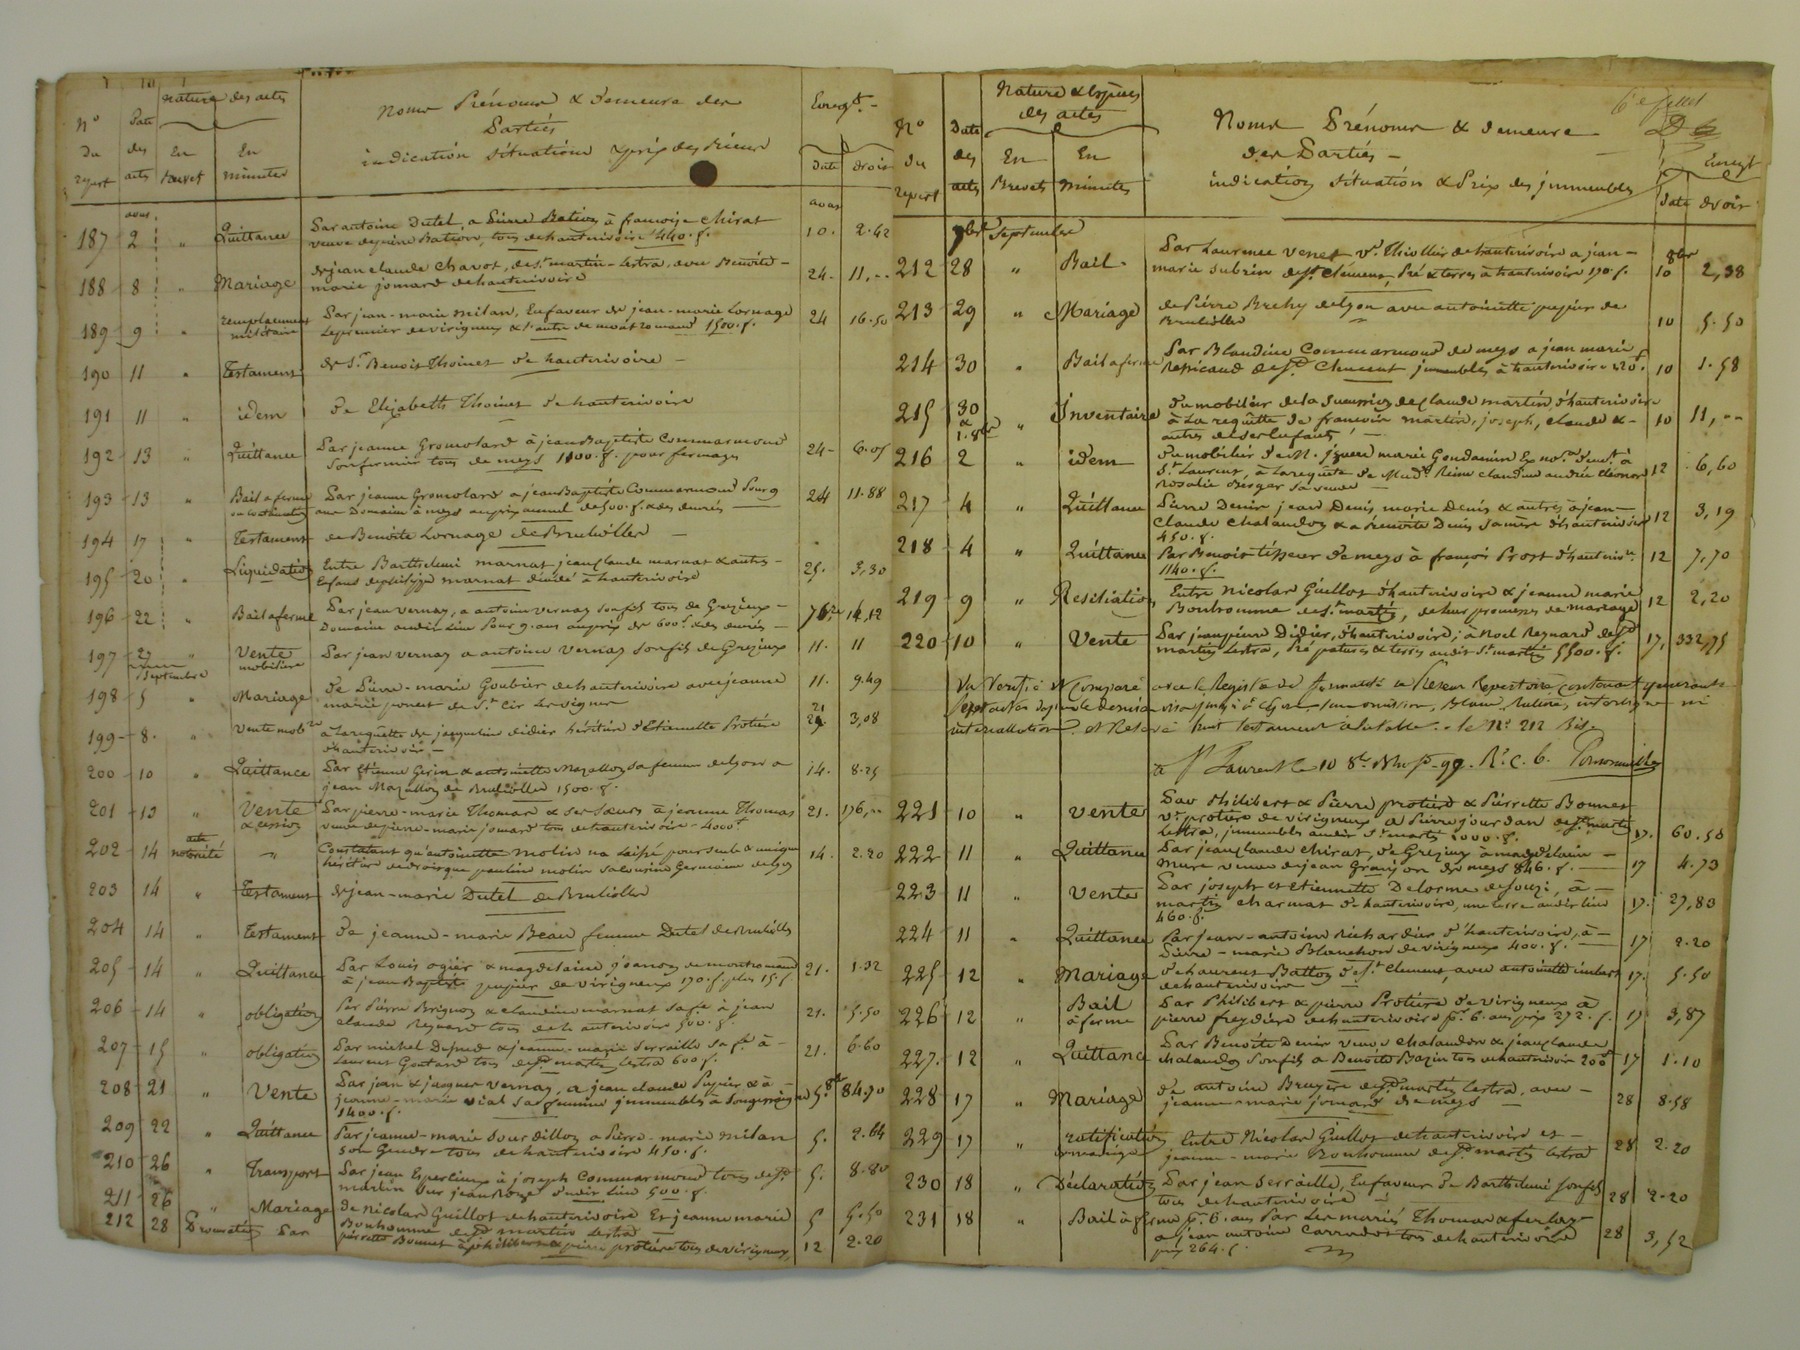 N° Date Nature des actes Noms Prénoms & demeure des Enregt.
du des En En Parties
repert actes Brevet minutes indication situations & prix des biens date droit
aout aout
187 2 " Quittance Par antoine Dutel, a Pierre Bation à françoise Chirat 10. 2.42
veuve de pierre Bation, tous de hauterivoire 440. f.
188 8 " Mariage de jean claude Chavot, de st. martin-lestra, avec Benoite- 24- 11,--
marie jomard de hauterivoire
189 9 " remplacement Par jean-marie milan, En faveur de jean-marie Lornage 24 16.50
militaire Le premier de virigneux & l'autre de montromand 1500. f.
190 11 " Testament de Sr. Benoit Thoinet de hauterivoire -
191 11 " idem de Elizabeth Thoinet de hauterivoire
192 13 " Quittance Par jeanne Gromolard à jean Baptiste Commarmond 24- 6.05
son fermier tous de meys 1100. f. pour fermages
193 13 " Bail a ferme Par jeanne Gromolard a jean Baptiste Commarmond Pour 9 24 11.88
ans Domaine à meys au prix annuel de 500. f. & des denrés
194 17 " Testament de Benoite Lornage de Brullioles -
195 20 " Liquidation Entre Barthelemi marnat jean claude marnat & autres- 25. 3,30
Enfans de philippe marnat décédé à hauterivoire
196 22 " Bail a ferme Par jean vernay, a antoine vernay son fils tous de Grezieux- 7bre 14,12
Domaine audit Lieu Pour 9. ans au prix de 600f. & des denrés -
197 27 " Vente Par jean vernay a antoine vernay son fils de Grezieux 11. 11
mobiliere
Septembre
198 5 " Mariage de Pierre-marie Goubier de hauterivoire avec jeanne 11. 9.49
marie poncet de St. Cir Les vignes
199- 8. " Vente mobre à la requette de jacqueline didier héritière d'Etiennette Protière 21 3,08
d'hauterivoire -
200 10 " Quittance Par Etienne Gerin & antoinette Mazallon sa femme de Lyon a 14. 8.25
jean Mazallon de Brullioles 1500. f.
201 13 " Vente Par pierre-marie Thomas & ses Sœurs à jeanne Thomas 21. 176,--
& cession veuve de pierre-marie jomard tous de hauterivoire - 4000f
202 14 acte notorieté " Constatant qu'antoinette molin na Laissé pour seule & unique 14. 2.20
héritière pauline molin sa cousine Germaine de Lyon
203 14 " Testament de jean-marie Dutel de Brullioles
204 14 " Testament de jeanne-marie Beau femme Dutel de Brullioles
205 14 " Quittance Par Louis ogier & magdelaine de montromand 21. 1.32
à jean Baptiste pupier de virigneux 170. f. plus 15 f.
206 14 " obligation Par Pierre Brignon & claudine marnat sa fe. à jean 21. 5.50
claude Reynard tous de hauterivoire 500. f.
207 15 " obligation Par michel Dupud & jeanne-marie Serraille sa fe. à - 21. 6.60
Laurent Goutard tous de St martin Lestra 600 f.
208 21 " Vente Par jean & jacques vernay, a jean claude Pupier & à - 5. 8bre 84.70
jeanne-marie vial sa femme immeubles à Longessaigne
1400. f.
209 22 " Quittance Par jeanne-marie Bourdillon a Pierre-marie milan 5. 2.64
son Gendre tous de hauterivoire 450. f.
210 26 " Transport Par jean Esperlieux à joseph Commarmond tous de St. 5. 8.80
martin sur jean Rose dudit Lieu 500. f.
211 26 " Mariage de Nicolas Guillot de hauterivoire Et jeanne marie 5 5.50
Bonhomme de St martin Lestra
212 28 Procuration Par pierrette Bonnet à philibert & pierre protière tous de virigneux 12 2.20
6e feuillet
N° Date Nature & Espèces Noms Prénoms & demeure
des actes
du des En En des Parties - Enregt
repert actes Brevets minutes indication situation & Prix des immeubles date droit
7bre Septembre 8bre
212 28 " Bail. Par Laurence Venet ve. Thiollier de hauterivoire a jean- 10 2,38
marie subrin de St. Clément, Pré & terres à hauterivoire 170 f.
213 29 " Mariage de Pierre Brehy de Lyon avec antoinette pupier de 10 5.50
Brullioles
214 30 " Bail a ferme Par Blandine Commarmond de meys a jean marie 10 1.58
de St. Clement immeubles à hauterivoire 120 f.
215 30 & 1. 8bre " Inventaire du mobilier de la succession de Claude martin, d'hauterivoire 10 11,--
à La requette de françois martin, joseph, claude &-
autres de ses Enfants -
216 2 " idem du mobilier de M. marie Gondamin Ex nore. demt. à 12 6,60
St. Laurent, à La requete de Made. Reine claudine andrée Eléonore
Rosalie Berger sa veuve -
217 4 " Quittance Pierre Denis jean Denis marie Denis & autres à jean- 12 3,19
Claude Chalandon & a Benoite Denis sa mère d'hauterivoire
450. f.
218 4 " Quittance Par Benoit tisseur de meys à françois Prost d'hauterivre. 12 7,70
1140. f.
219 9 " Resiliation Entre Nicolas Guillot d'hauterivoire & jeanne marie 12 2,20
Bonhomme de St. martin, de leur promesses de mariage
220 10 " Vente Par jean pierre Didier, d'hauterivoire, à Noel Reynard de St 17. 332,75
martin Lestra, Pré patures & terres audit St. martin 5500. f.
Vu Verifié et Comparé avec le Registre de formalité le présent Repertoire contenant quarante
actes depuis le dernier visa jusqu'à ce jour sans omission, Blanc, Rature, interligne ni
intercallation et Relevé huit testament à la table. le No. 212 Bis.
a St Laurent le 10 8bre fo. 99. Ro. C. 6.
221 10 " Vente Par Philibert & Pierre protière & Pierrette Bonnet 17. 60.50
ve. protière de virigneux a Pierre jourdan de St. martin
Lestra, immeubles audit St. martin 1000. f.
222 11 " Quittance Par jean claude chirat, de Grezieux à magdelaine - 17 4.73
Mure veuve de jean Granjon de meys 846. f. -
223 11 " Vente Par joseph et Etiennette Delorme de Souzi, à - 17. 27,83
martin charmat de hauterivoire, une terre audit lieu
460. f.
224 11 " Quittance Par jean-antoine Richardier d'hauterivoire, à - 17 2.20
Pierre-marie Blanchon de virigneux 400. f. -
225 12 " Mariage de Laurent Batton de St. Clement, avec antoinette imbert 17. 5.50
de hauterivoire
226 12 " Bail Par Philibert & pierre Protière de virigneux à 17 3,87
à ferme pierre freydière de hauterivoire pr. 6. ans prix 272. f.
227. 12 " Quittance Par Benoite Denis veuve chalandon & jean claude 17 1.10
chalandon son fils a Benoite Bazin tous de hauterivoire 200f
228 17 " Mariage de antoine Bruyère de St. martin Lestra, avec - 28 8.58
jeanne-marie jomard de meys -
229 17 " ratification Entre Nicolas Guillot de hauterivoire et - 28 2.20
de mariage jeanne-marie Bonhomme de St. martin Lestra
230 18 " Déclaration Par jean Serraille, En faveur de Barthelemi son fils 28 2.20
tous de hauterivoire -
231 18 " Bail à ferme pr. 6. ans Par Les mariés Thomas & 28 3,52
a jean antoine tous de hauterivoire
prix 264. f.